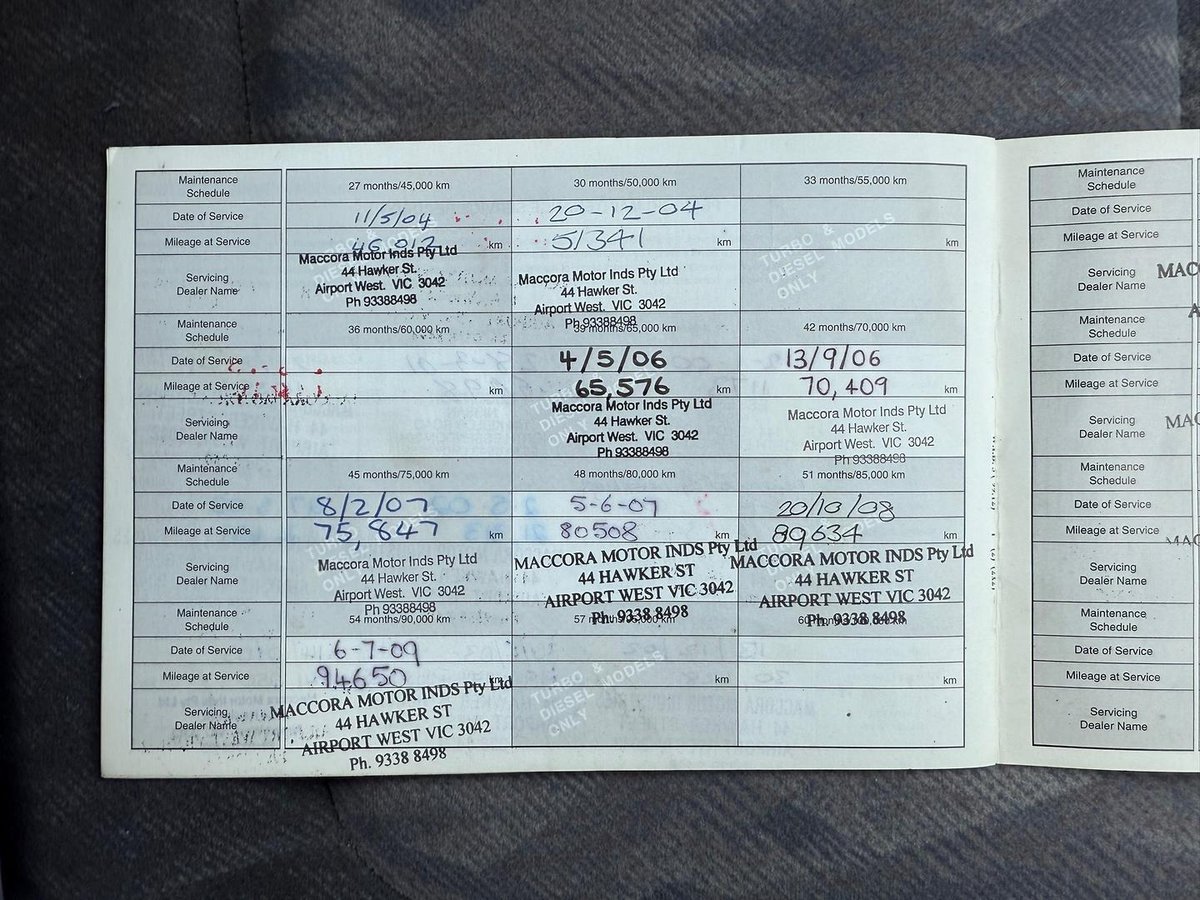 Maintenance Schedule 27 months/45,000 km 30 months/50,000 km 33 months/55,000 km
Date of Service 11/5/04 20-12-04
Mileage at Service km 51341 km km
Servicing Dealer Name
Maccora Motor Inds Pty Ltd
44 Hawker St.
Airport West. VIC 3042
Ph 93388498
Maccora Motor Inds Pty Ltd
44 Hawker St.
Airport West. VIC 3042
Ph 93388498
TURBO & DIESEL MODELS ONLY
Maintenance Schedule 36 months/60,000 km 39 months/65,000 km 42 months/70,000 km
Date of Service 4/5/06 13/9/06
Mileage at Service km 65,576 km 70,409 km
Servicing Dealer Name
Maccora Motor Inds Pty Ltd
44 Hawker St.
Airport West. VIC 3042
Ph 93388498
Maccora Motor Inds Pty Ltd
44 Hawker St.
Airport West. VIC 3042
Ph 93388498
Maintenance Schedule 45 months/75,000 km 48 months/80,000 km 51 months/85,000 km
Date of Service 8/2/07 5-6-07 20/10/08
Mileage at Service 75,847 km 80508 km 89634 km
Servicing Dealer Name
Maccora Motor Inds Pty Ltd
44 Hawker St.
Airport West. VIC 3042
Ph 93388498
MACCORA MOTOR INDS Pty Ltd
44 HAWKER ST
AIRPORT WEST VIC 3042
Ph. 9338 8498
MACCORA MOTOR INDS Pty Ltd
44 HAWKER ST
AIRPORT WEST VIC 3042
Ph. 9338 8498
Maintenance Schedule 54 months/90,000 km
Date of Service 6-7-09
Mileage at Service 94650 km km km
Servicing Dealer Name
MACCORA MOTOR INDS Pty Ltd
44 HAWKER ST
AIRPORT WEST VIC 3042
Ph. 9338 8498
TURBO & DIESEL MODELS ONLY
Maintenance Schedule
Date of Service
Mileage at Service
Servicing Dealer Name
Maintenance Schedule
Date of Service
Mileage at Service
Servicing Dealer Name
Maintenance Schedule
Date of Service
Mileage at Service
Servicing Dealer Name
Maintenance Schedule
Date of Service
Mileage at Service
Servicing Dealer Name